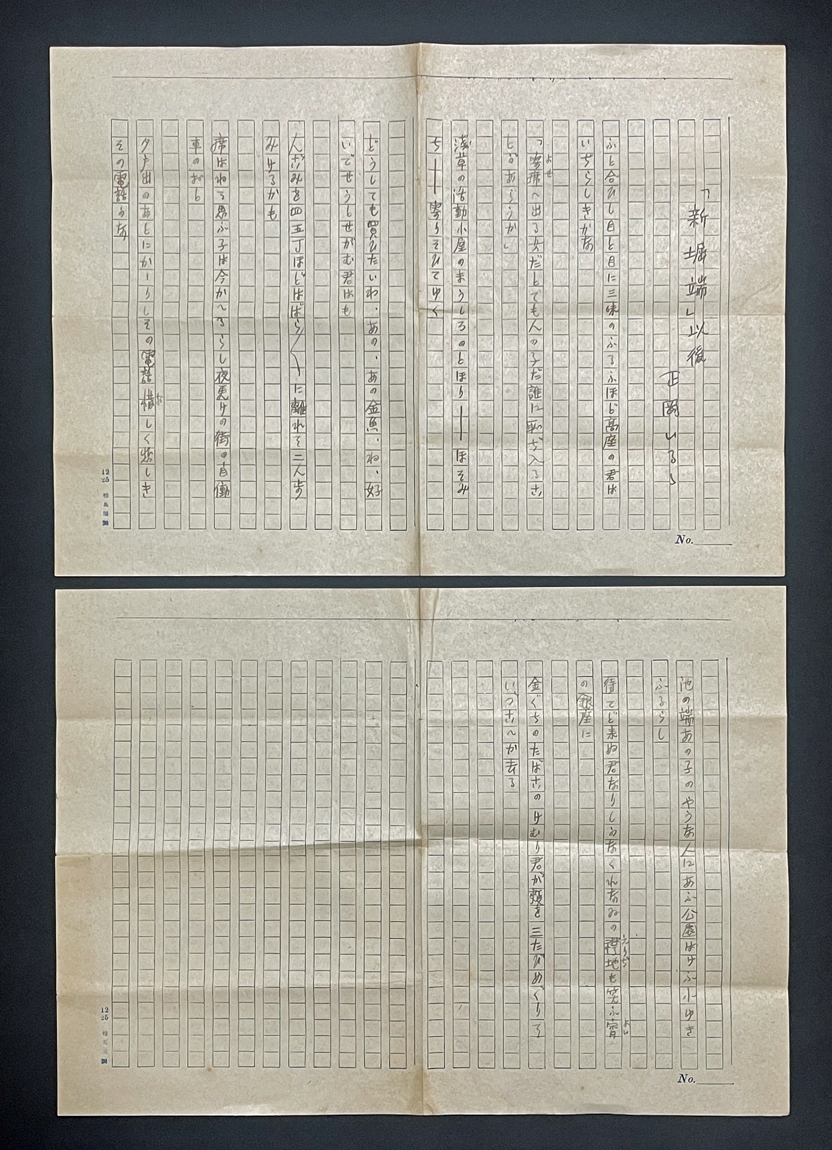 「新堀端」以後
正岡いるゝ
ふと合ひし目と目に三味のふるふほど高座の君は
いぢらしきかな
よせ
「寄席へ出る女だとても人の子だ誰に恥ぢ入るこ
とがあらうか」
浅草の活動小屋のまうしろのとほり――ほそみ
ち――寄りそひてゆく
どうしても買ひたいわ、あの、あの金魚、ね、好
いでせうとせがむ君はも
人ごみを四五丁ほどはぱらぱらに離れて二人歩
みけるかも
席はねて思ふ子は今かへるらし夜更けの街の自働
車のおと
夕戸出のあとにかゝりしその電話惜しく悲しき
その電話かな
No.
池の端あの子のやうな人にあふ公園はけふ小ゆき
ふるらし
待てど来ぬ君なりしかなくれなゐの襟地も笑ふ宵
えりぢ
よひ
の銀座に
金ぐちのたばこのけむり君が頬を三たびめぐりて
いづこへか去る
No.